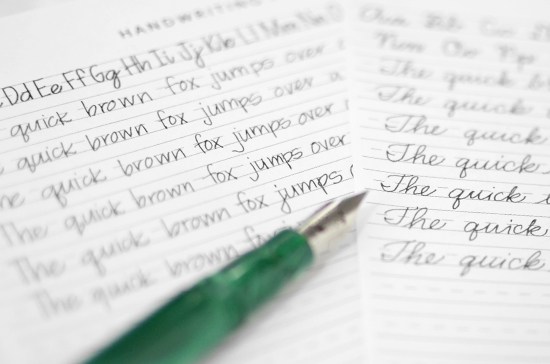 HANDWRITING
Dd Ee Ff Gg Hh Ii Jj Kk Ll Mm Nn
quick brown fox jumps over
quick brown fox jumps over a
quick brown fox jumps over
The quick brown fox jumps over
The quick brown fox jumps
The quick brown fox
The quick brown
The quick
The quick
The quick
The quick
The quick
The quick
The quick